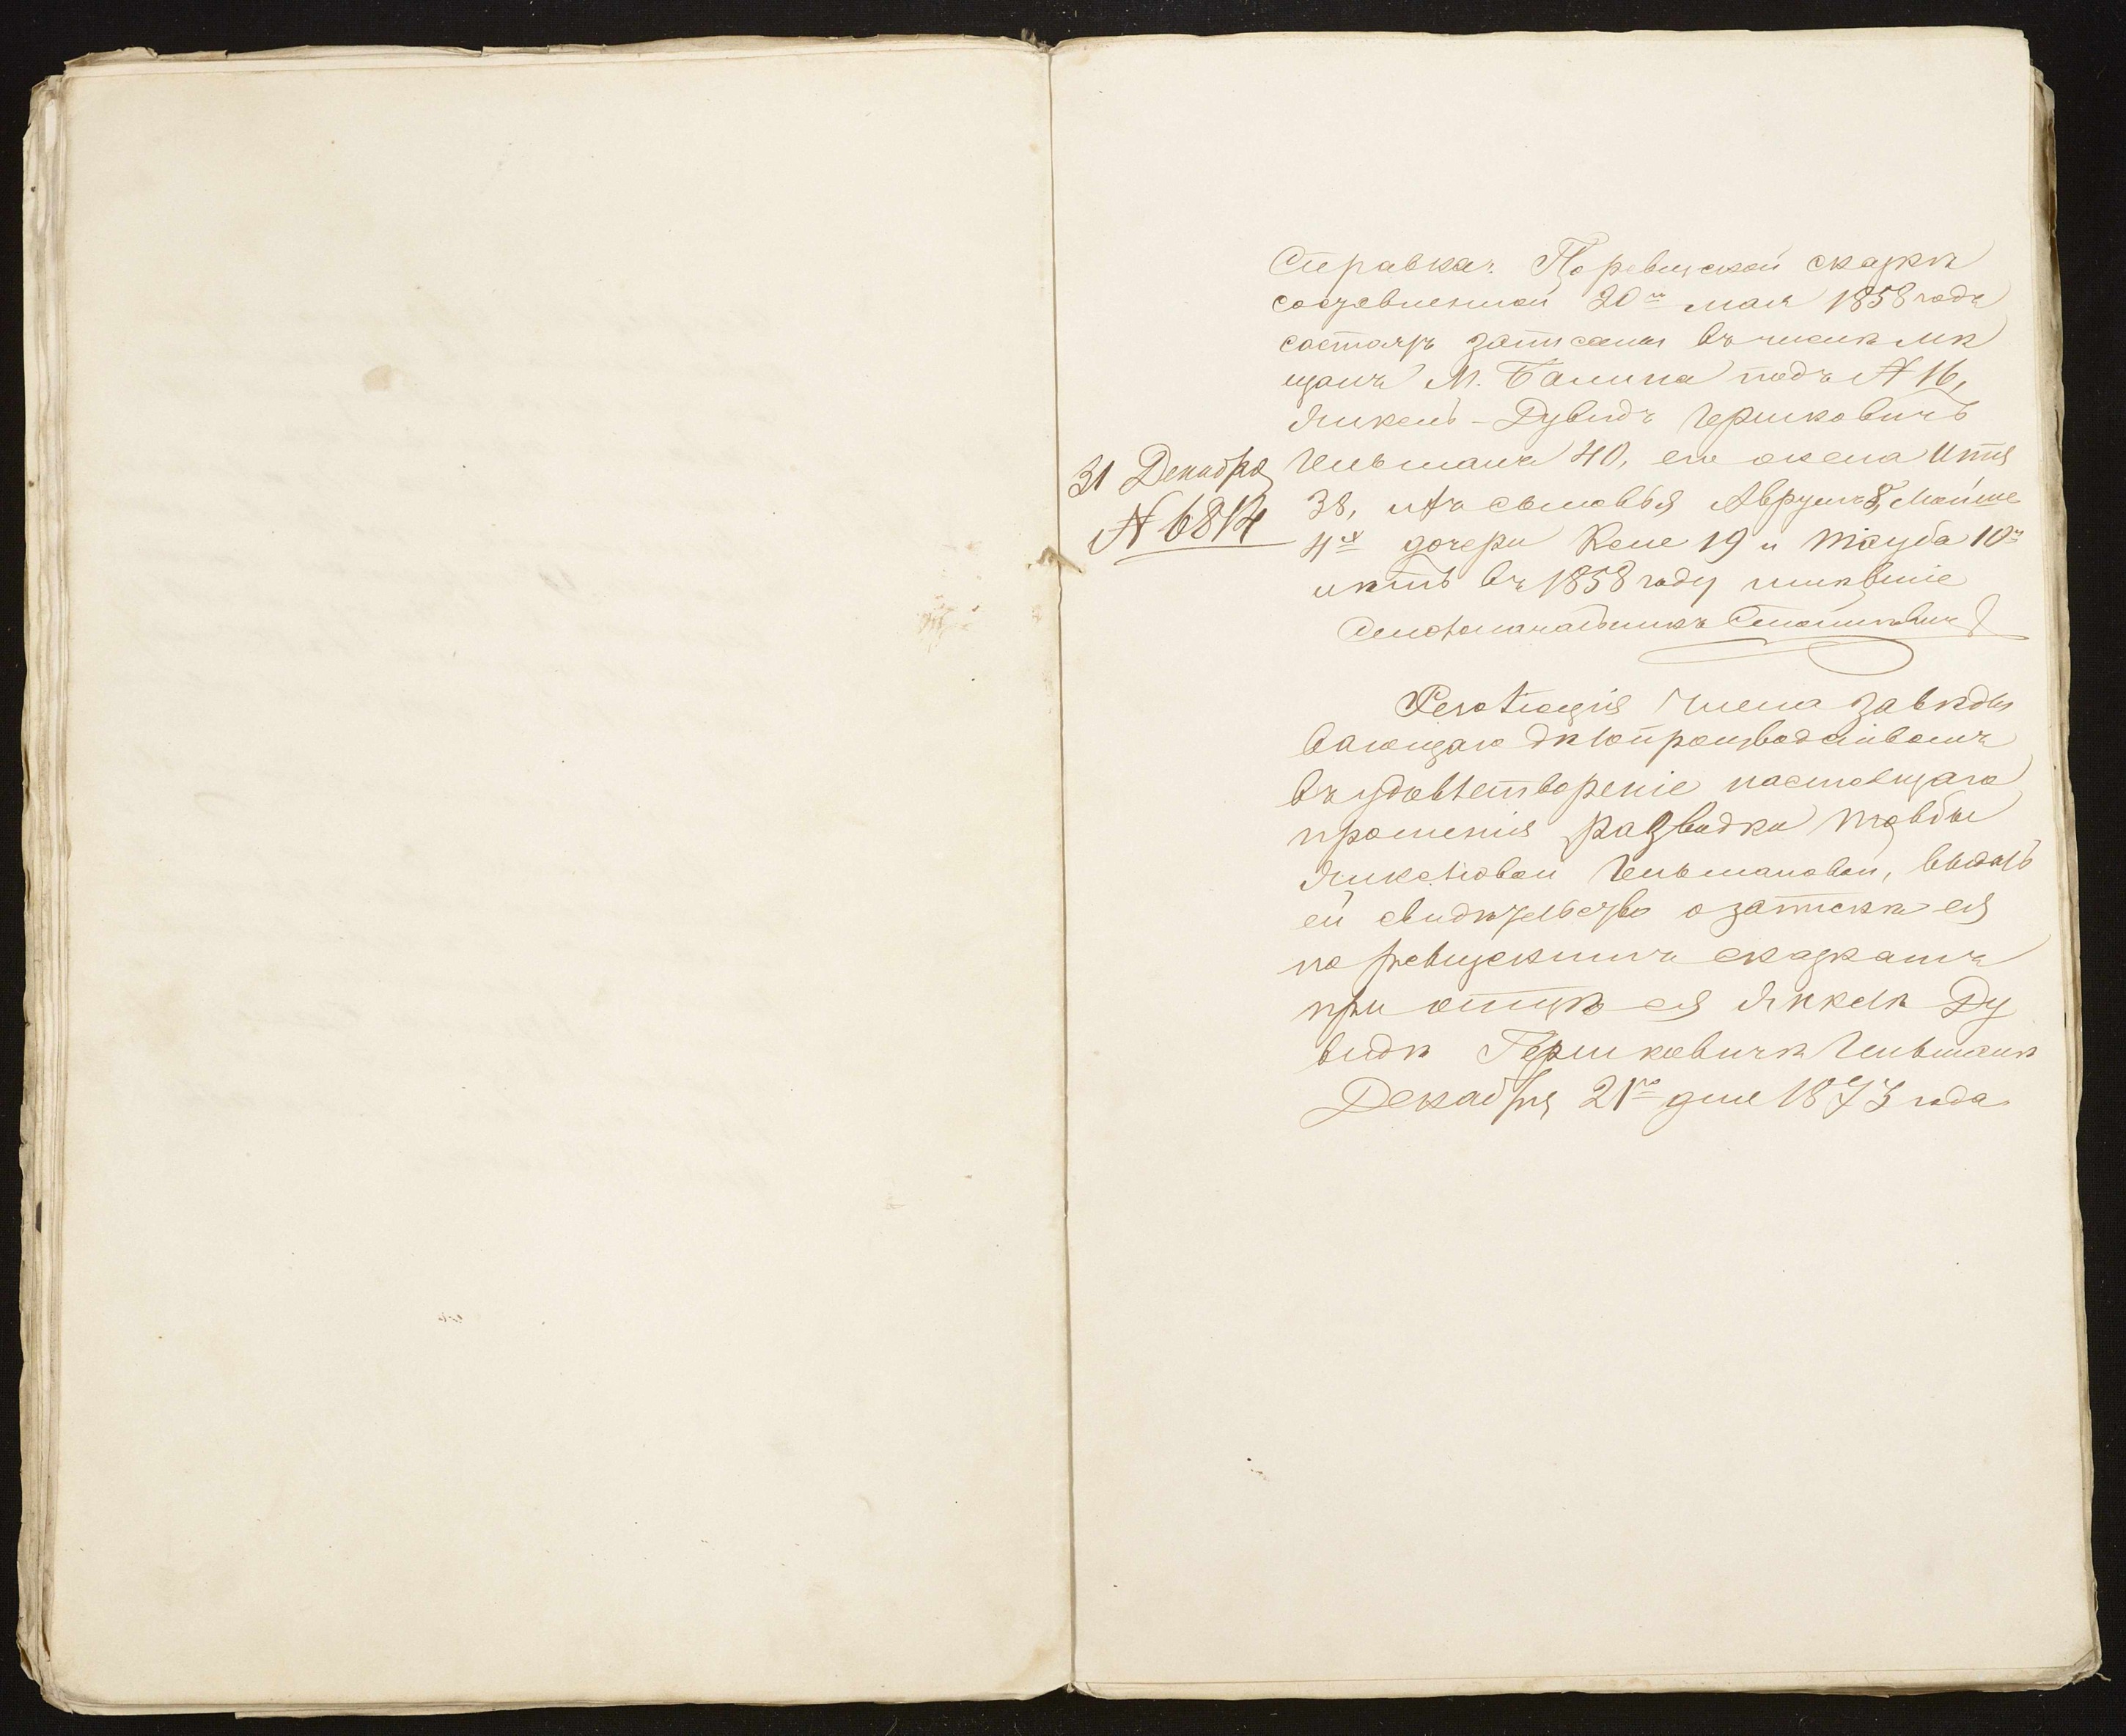 Справка. По ревизской сказкѣ
составленной 20го мая 1858 года
состоятъ записаны въ числѣ мѣ
щанъ М. Балина подъ № 16,
Янкель-Дувидъ Гершковичъ
Гельманъ 40, его жена Итля
38, ихъ сыновья Аврумъ 8, Мойше
4хъ дочери Кене 19 и Тауба 10ти
лѣтъ въ 1858 году имѣвшіе
Дѣлопроизводитель
31 Декабря
№ 6814
Резолюція Члена завѣды
вающаго дѣлопроизводствомъ
въ удовлетвореніе настоящаго
прошенія разводки Таубы
Янкелевой Гельмановой, выдать
ей свидѣтельство о запискѣ ея
по ревизскимъ сказкамъ
при отцѣ ея Янкелѣ Ду
видѣ Гершковичѣ Гельманѣ
Декабря 21го дня 1873 года